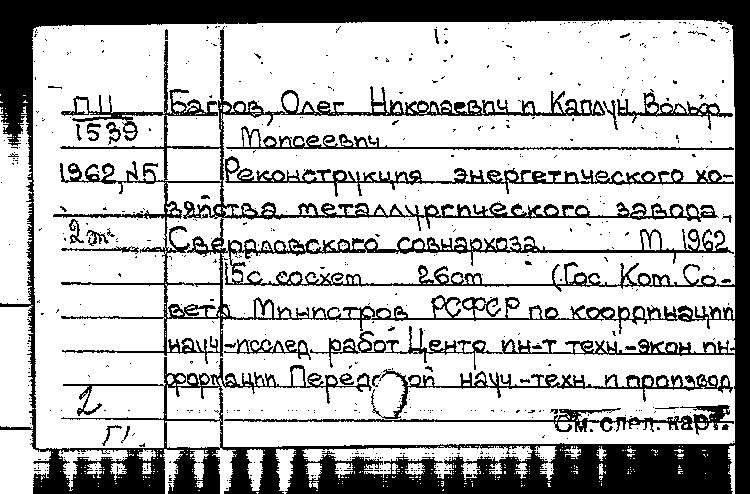 1.
П11 Багров, Олег Николаевич и Каплун, Вольф
1539 Моисеевич.
1962, №5 Реконструкция энергетического хо-
зяйства металлургического завода,
2 эт Свердловского совнархоза. М., 1962
15с. со схем 26см (Гос. Ком. Со-
вета Министров РСФСР по координации
науч-исслед. работ. Центр. ин-т техн.-экон. ин-
формации. Передовой науч.-техн. и производ.
2 См. след. карт.
Г1.